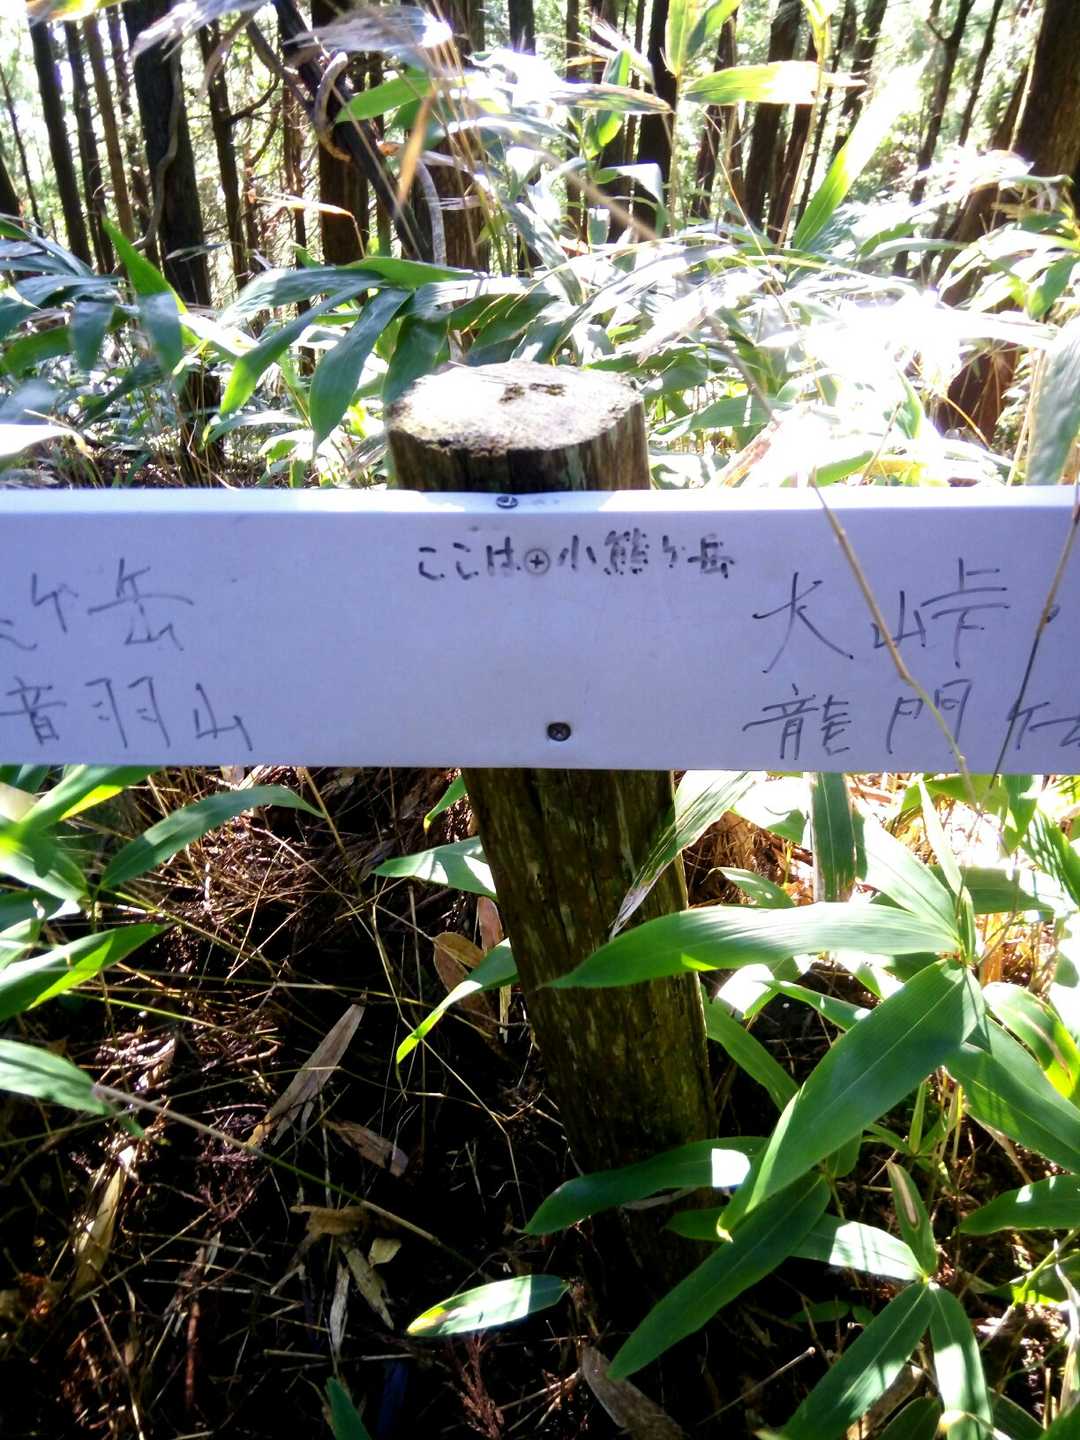 ここは小熊ヶ岳
ヶ岳
音羽山
大峠
龍門